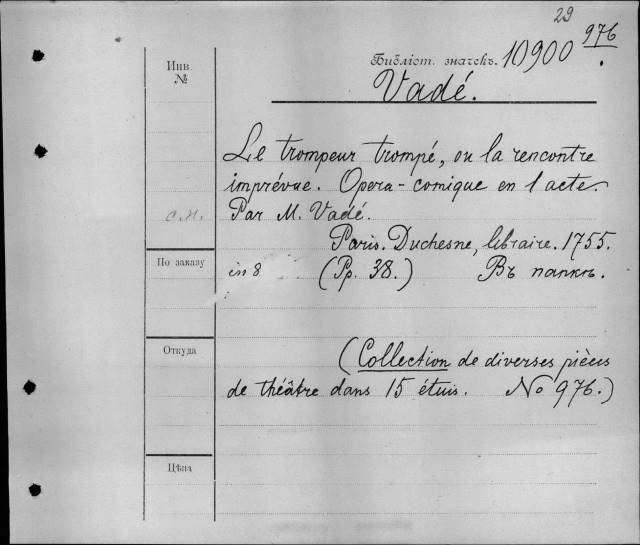 29
Библіот. значекъ. 10900 976
Инв.
№
Vadé.
Le trompeur trompé, ou la rencontre
imprévue. Opera-comique en 1 acte.
с.н. Par M. Vadé.
Paris. Duchesne, libraire. 1755.
По заказу
in 8 (Pp. 38.) Въ папкѣ.
Откуда
(Collection de diverses pièces
de théâtre dans 15 étuis. No 976.)
Цѣна